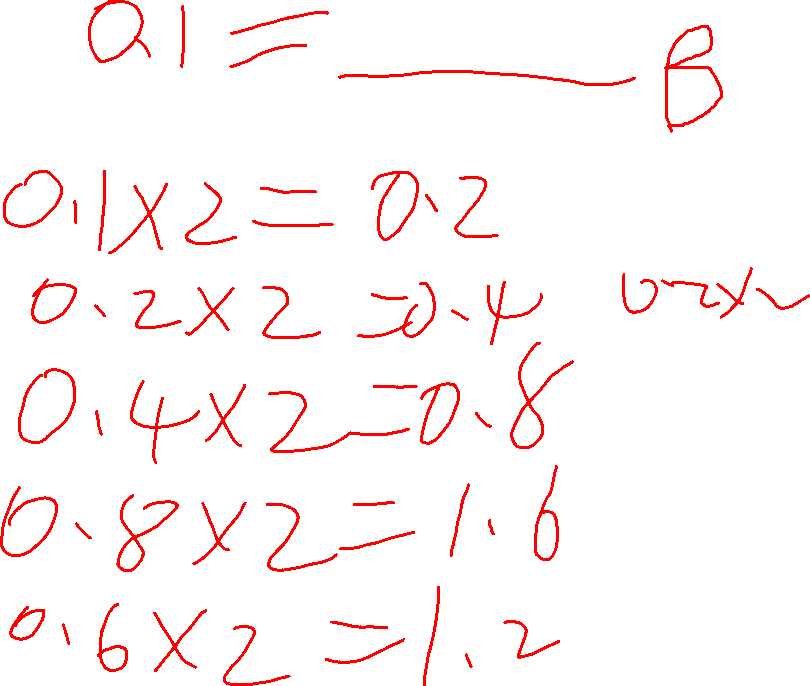 0.1 = ______ B
0.1×2=0.2
0.2×2=0.4 0.2×2
0.4×2=0.8
0.8×2=1.6
0.6×2=1.2